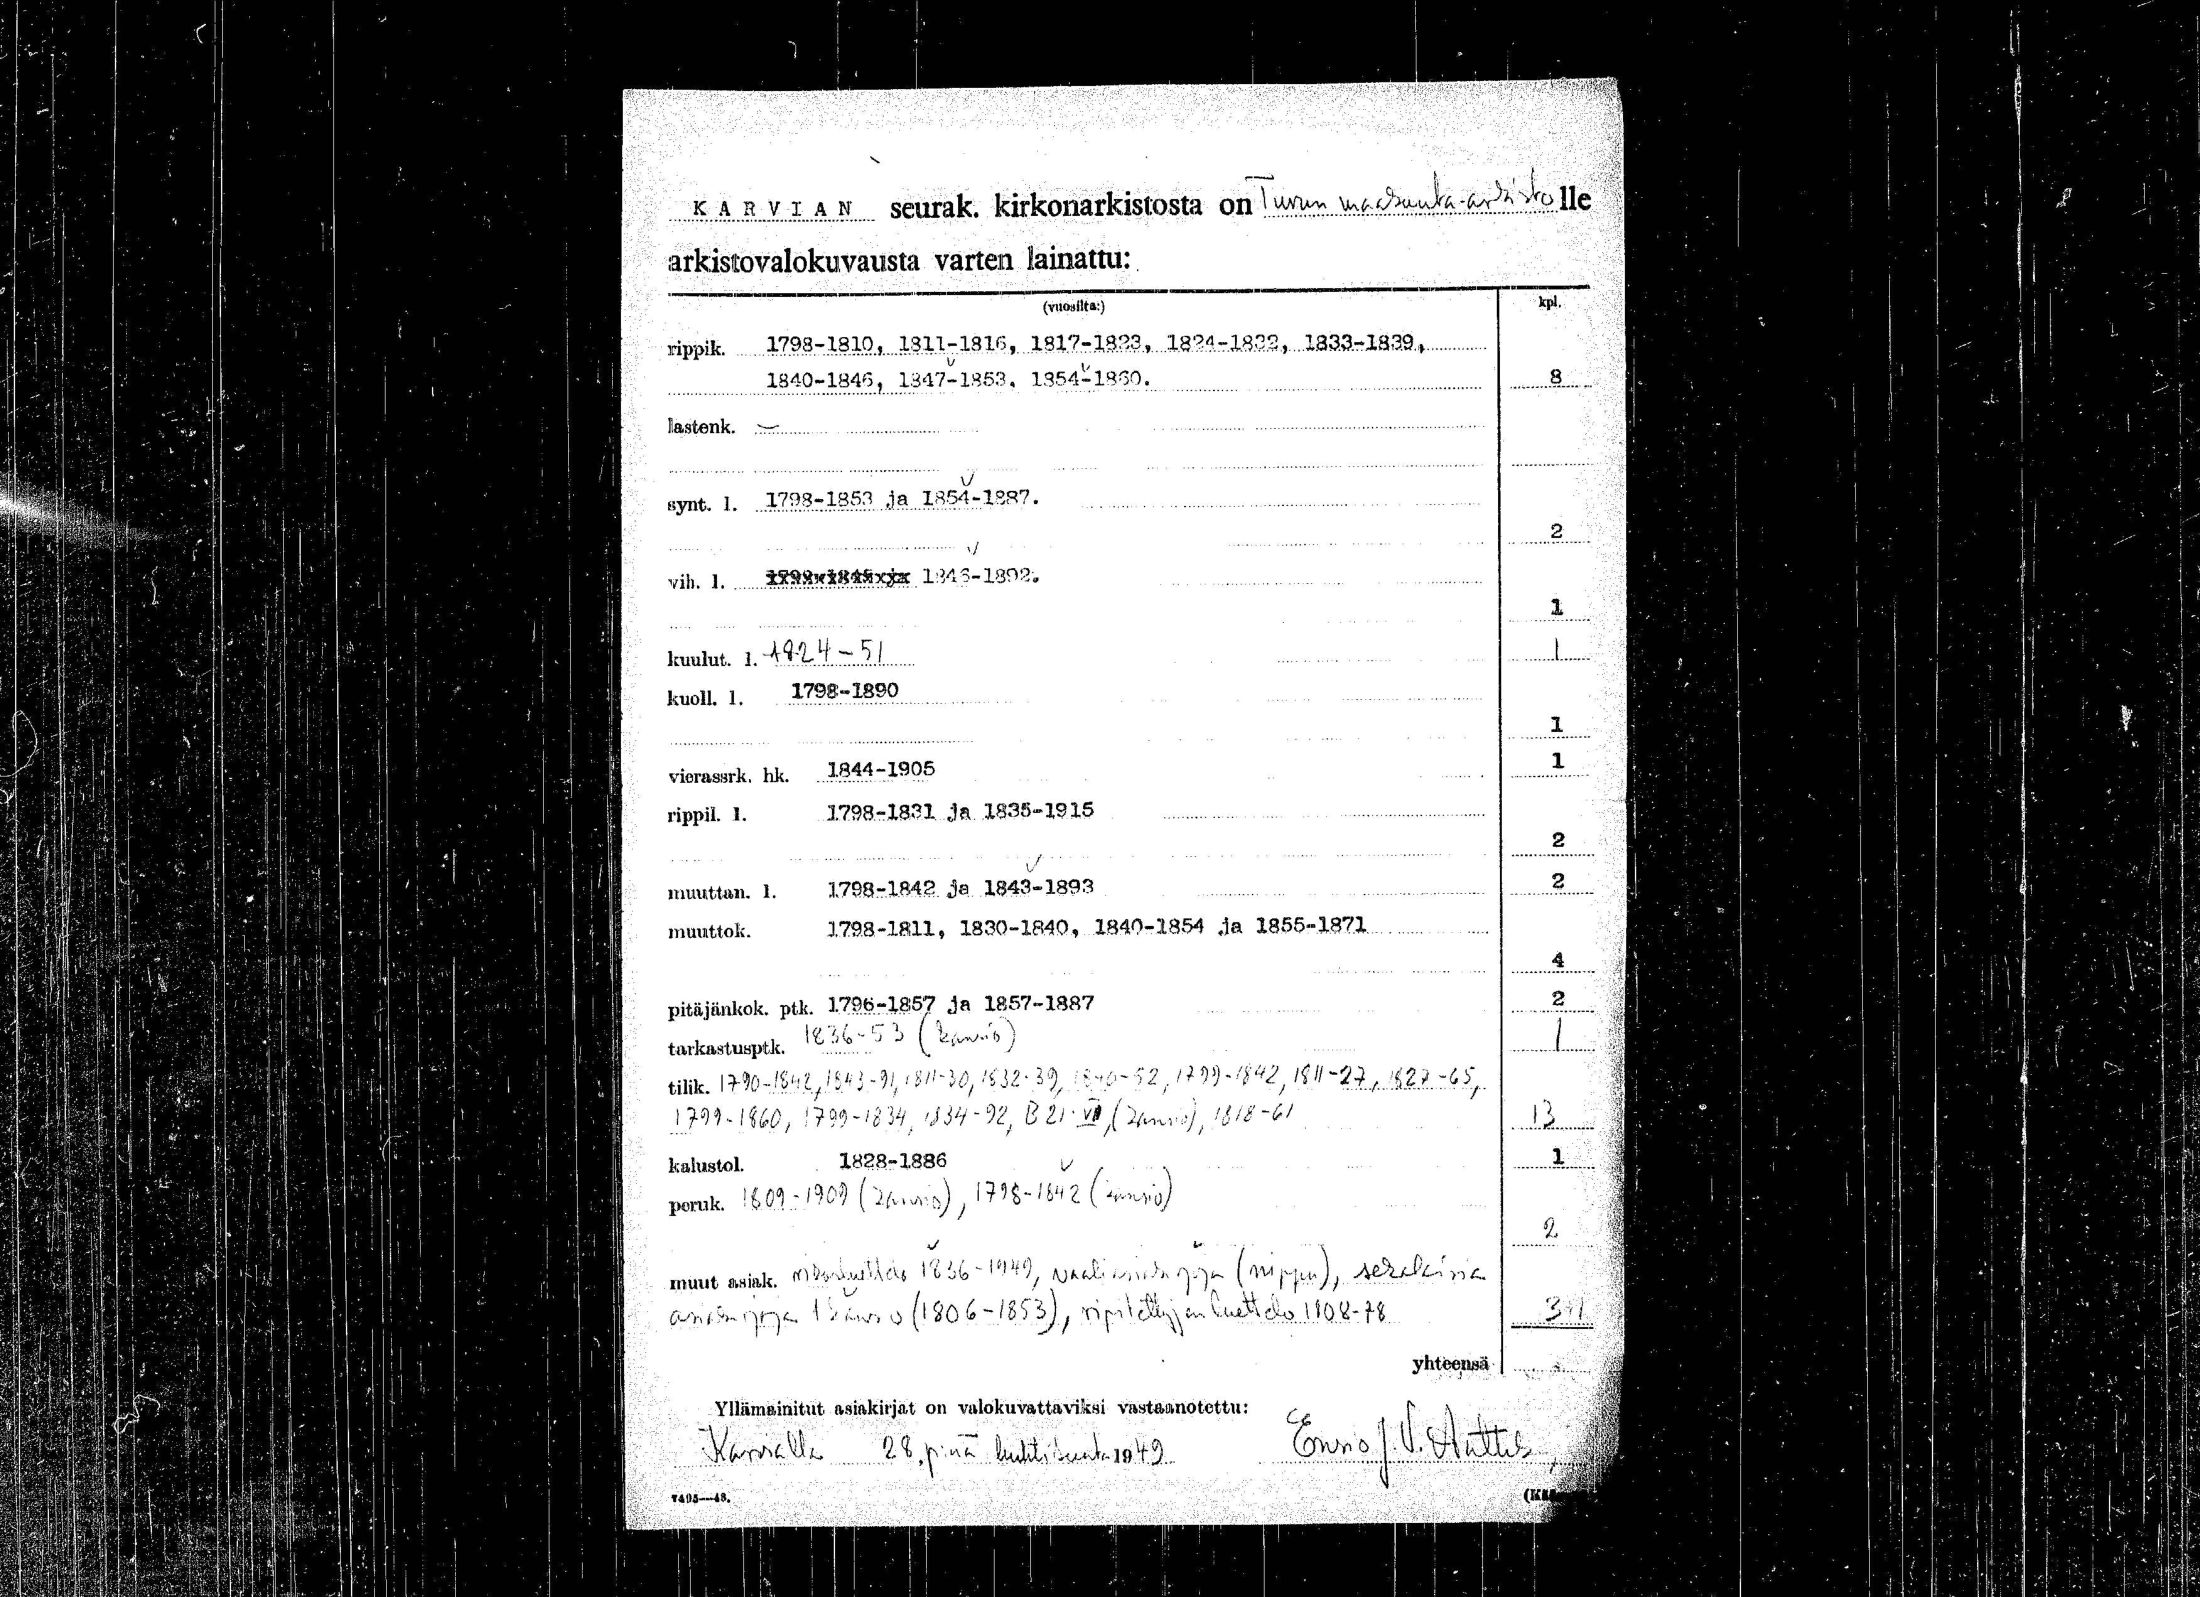 KARVIAN seurak. kirkonarkistosta on Turun maakunta-arkistolle
arkistovalokuvausta varten lainattu:
(vuosilta:) kpl.
rippik. 1798-1810, 1811-1816, 1817-1823, 1824-1832, 1833-1839,
1840-1846, 1847-1853. 1854-1860. 8
lastenk. —
synt. l. 1798-1853 ja 1854-1887.
2
vih. l. 1846-1892.
1
kuulut. l. 1824-51 1
kuoll. l. 1798-1890
1
vierassrk. hk. 1844-1905 1
rippil. l. 1798-1831 ja 1835-1915
2
muuttan. l. 1798-1842 ja 1843-1893 2
muuttok. 1798-1811, 1830-1840, 1840-1854 ja 1855-1871
4
pitäjänkok. ptk. 1796-1857 ja 1857-1887 2
tarkastusptk. 1836-53 (kansio) 1
tilik. 1790-1842, 1843-91, 1811-30, 1832-39, 1840-52, 1799-1842, 1811-27, 1827-65,
1799-1860, 1799-1834, 1834-92, B 21 (kansio), 1818-61 13
kalustol. 1828-1886 1
peruk. 1809-1909 (kansio), 1798-1842 (kansio)
2
muut asiak. 1836-1949, vaaliasiakirjoja (nippu), sekalaisia
asiakirjoja 1 kansio (1806-1853), ripitettyjen luettelo
yhteensä
Yllämainitut asiakirjat on valokuvattaviksi vastaanotettu:
Karvialla 28. p:nä huhtikuuta 1949 Ensio J. V.
7495—48.